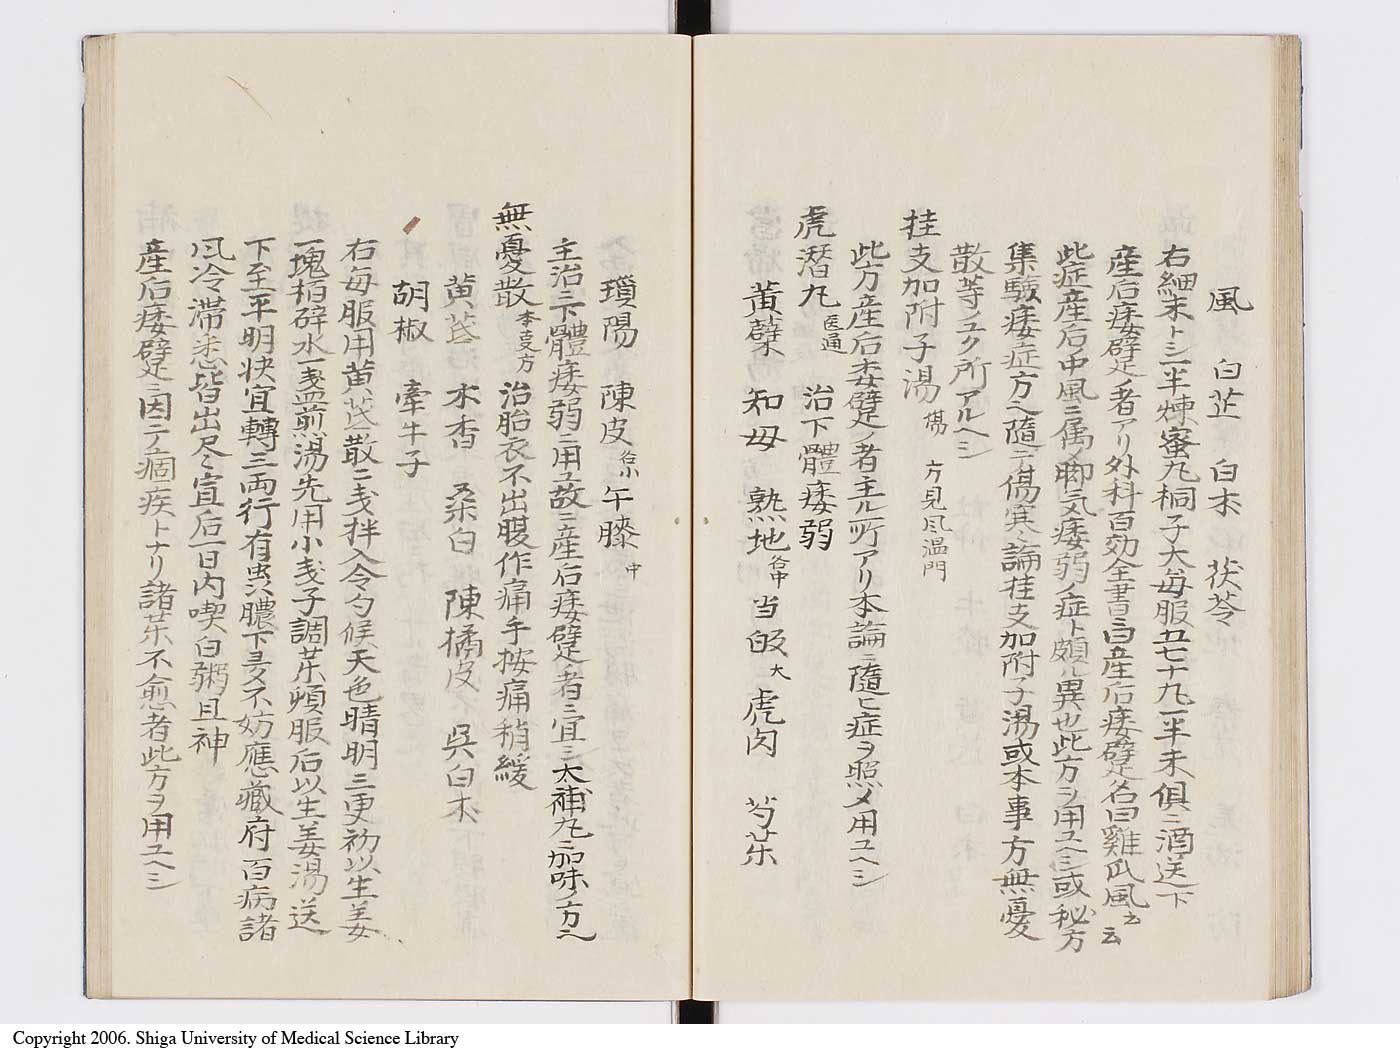 風　白芷　白朮　茯苓
右細末トシ一半煉蜜丸桐子大毎服五七十丸一半末俱ニ酒送下
産后痿躄ノ者アリ外科百効全書ニ曰産后痿躄名曰雞爪風云云
此症産后中風ニ属ノ脚気痿弱ノ症ト頗ル異也此方ヲ用ユヘシ或秘方
集驗痿症方ヘ隨テ傷寒論桂支加附子湯或本事方無憂
散等ユク所アルヘシ
桂支加附子湯　傷　方見風温門
此方産后痿躄ノ者主ル所アリ本論ニ隨ヒ症ヲ照メ用ユヘシ
虎潜丸　医通　治下體痿弱
黄蘗　知母　熟地各中　当皈大　虎肉　芍薬
瓆陽　陳皮各小　午膝中
主治ニ下體痿弱ニ用ユ故ニ産后痿躄者ニ宜シ太補丸ニ加味ノ方ヘ
無憂散　李史方　治胎衣不出腹作痛手按痛稍緩
黄茋　木香　桑白　陳橘皮　呉白朮
胡椒　牽牛子
右毎服用黄茋散二戔拌入令匀候天色晴明三更初以生姜
一塊栢碎水一盞煎湯先用小戔子調薬頓服后以生姜湯送
下至平明快宜轉三両行有異膿下更不妨應藏府百病諸
風冷滞悉皆出尽宜后一日内喫白粥且神
産后痿躄ニ因テ痼疾トナリ諸薬不愈者此方ヲ用ユヘシ
Copyright 2006. Shiga University of Medical Science Library